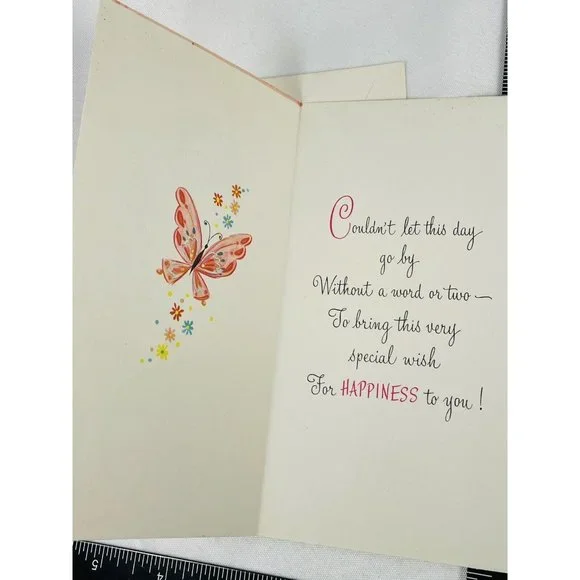 Couldn't let this day
go by
Without a word or two —
To bring this very
special wish
For HAPPINESS to you!
5
4